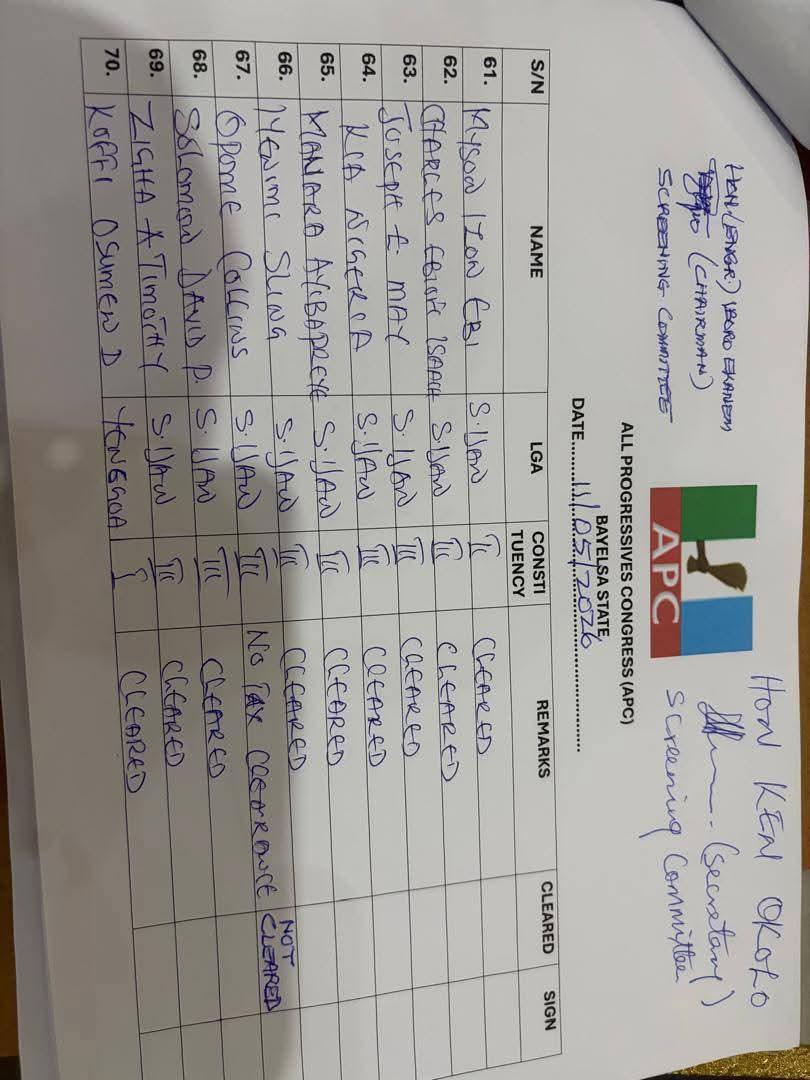 HON. (ENGR.) IBORO EKANEM
(CHAIRMAN)
SCREENING COMMITTEE
HON KEN OKOLO
(Secretary)
Screening Committee
APC
ALL PROGRESSIVES CONGRESS (APC)
BAYELSA STATE,
DATE.........11/05/2026
S/N NAME LGA CONSTI TUENCY REMARKS CLEARED SIGN
61. MYSON IZON EBI S. IJAW II CLEARED
62. CHARLES EBIOH ISAACH S. IJAW III CLEARED
63. JOSEPH E MAY S. IJAW III CLEARED
64. KIA NIGERIA S. IJAW III CLEARED
65. MANARA AYIBAPREYE S. IJAW III CLEARED
66. IYENIMI SLING S. IJAW III CLEARED
67. OPOME COLLINS S. IJAW III NO TAX CLEARANCE NOT CLEARED
68. SOLOMON DAVID P. S. IJAW III CLEARED
69. ZIGHA A TIMOTHY S. IJAW III CLEARED
70. KOFFI OSUMEN D YENEGOA I CLEARED